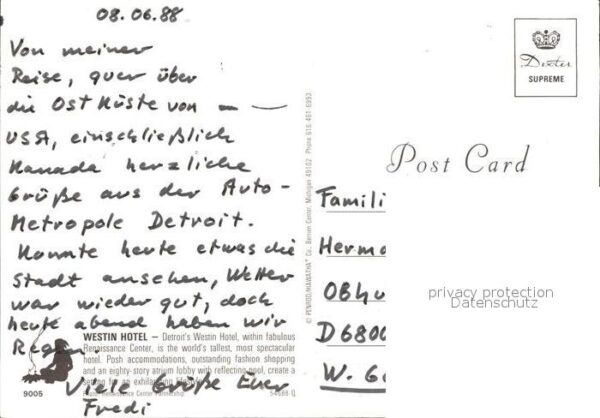 08.06.88
Von meiner
Reise, quer über
die Ost Küste von
USA, einschließlich
Kanada herzliche
Grüße aus der Auto-
Metropole Detroit.
Konnte heute etwas die
Stadt ansehen, Wetter
war wieder gut, doch
heute abend haben wir
Regen.
Viele Grüße Euer
Fredi
WESTIN HOTEL — Detroit's Westin Hotel, within fabulous
Renaissance Center, is the world's tallest, most spectacular
hotel. Posh accommodations, outstanding fashion shopping
and an eighty-story atrium lobby with reflecting pool, create a
setting for an
9005
54686 Q
© PENROD/HIAWATHA Co., Berrien Center, Michigan 49102 Phone 616 461-6993
Dexter
SUPREME
Post Card
Famili
Herma
D6800
privacy protection
Datenschutz